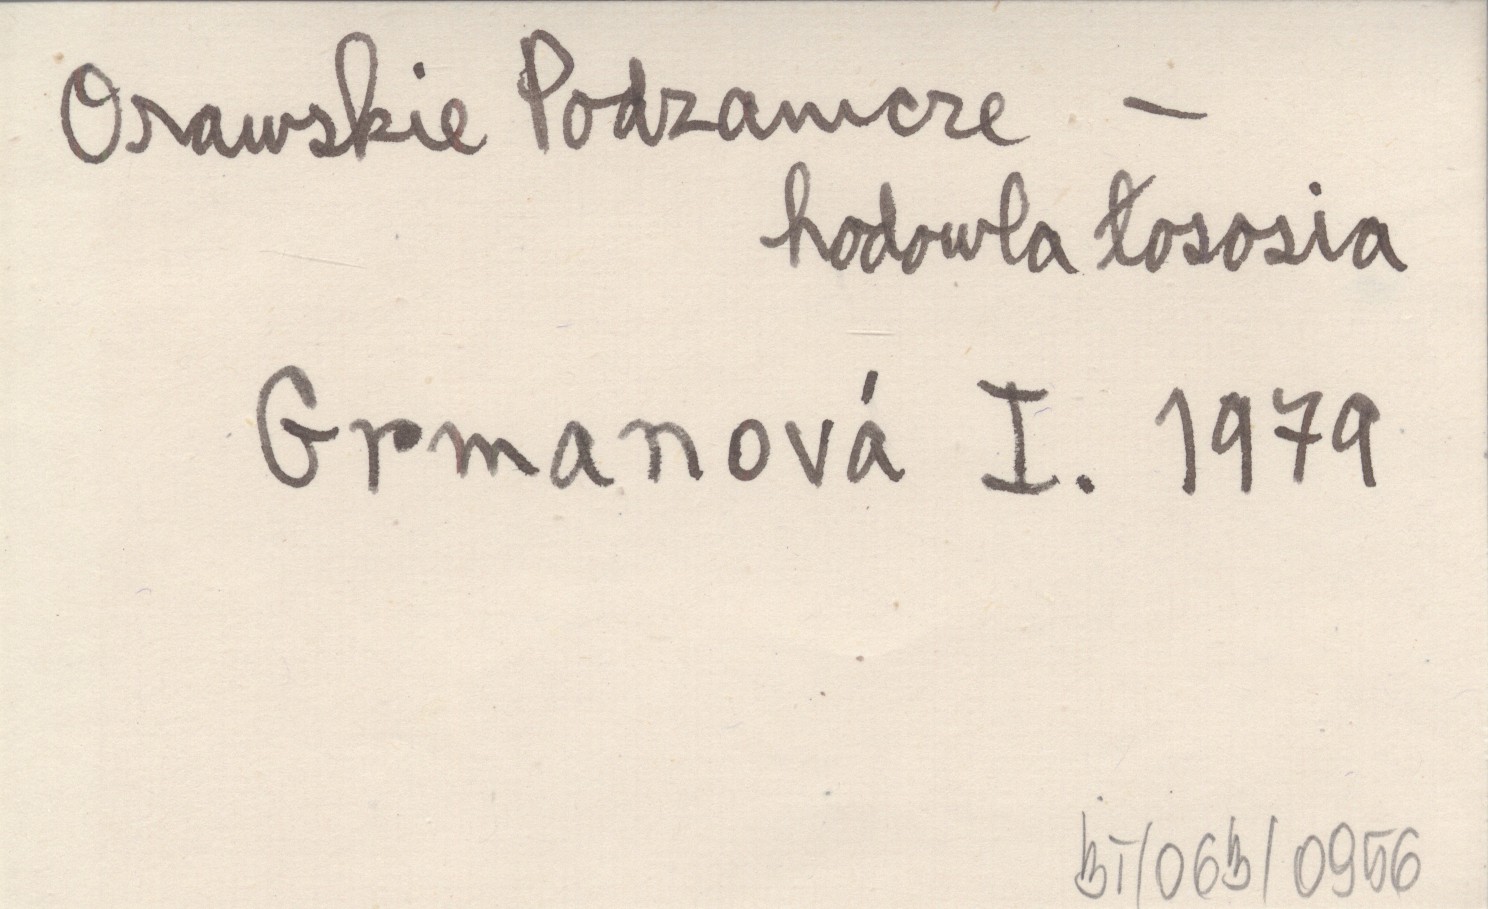 Orawskie Podzamcze –
hodowla łososia
Grmanová I. 1979
BI/06B/0956